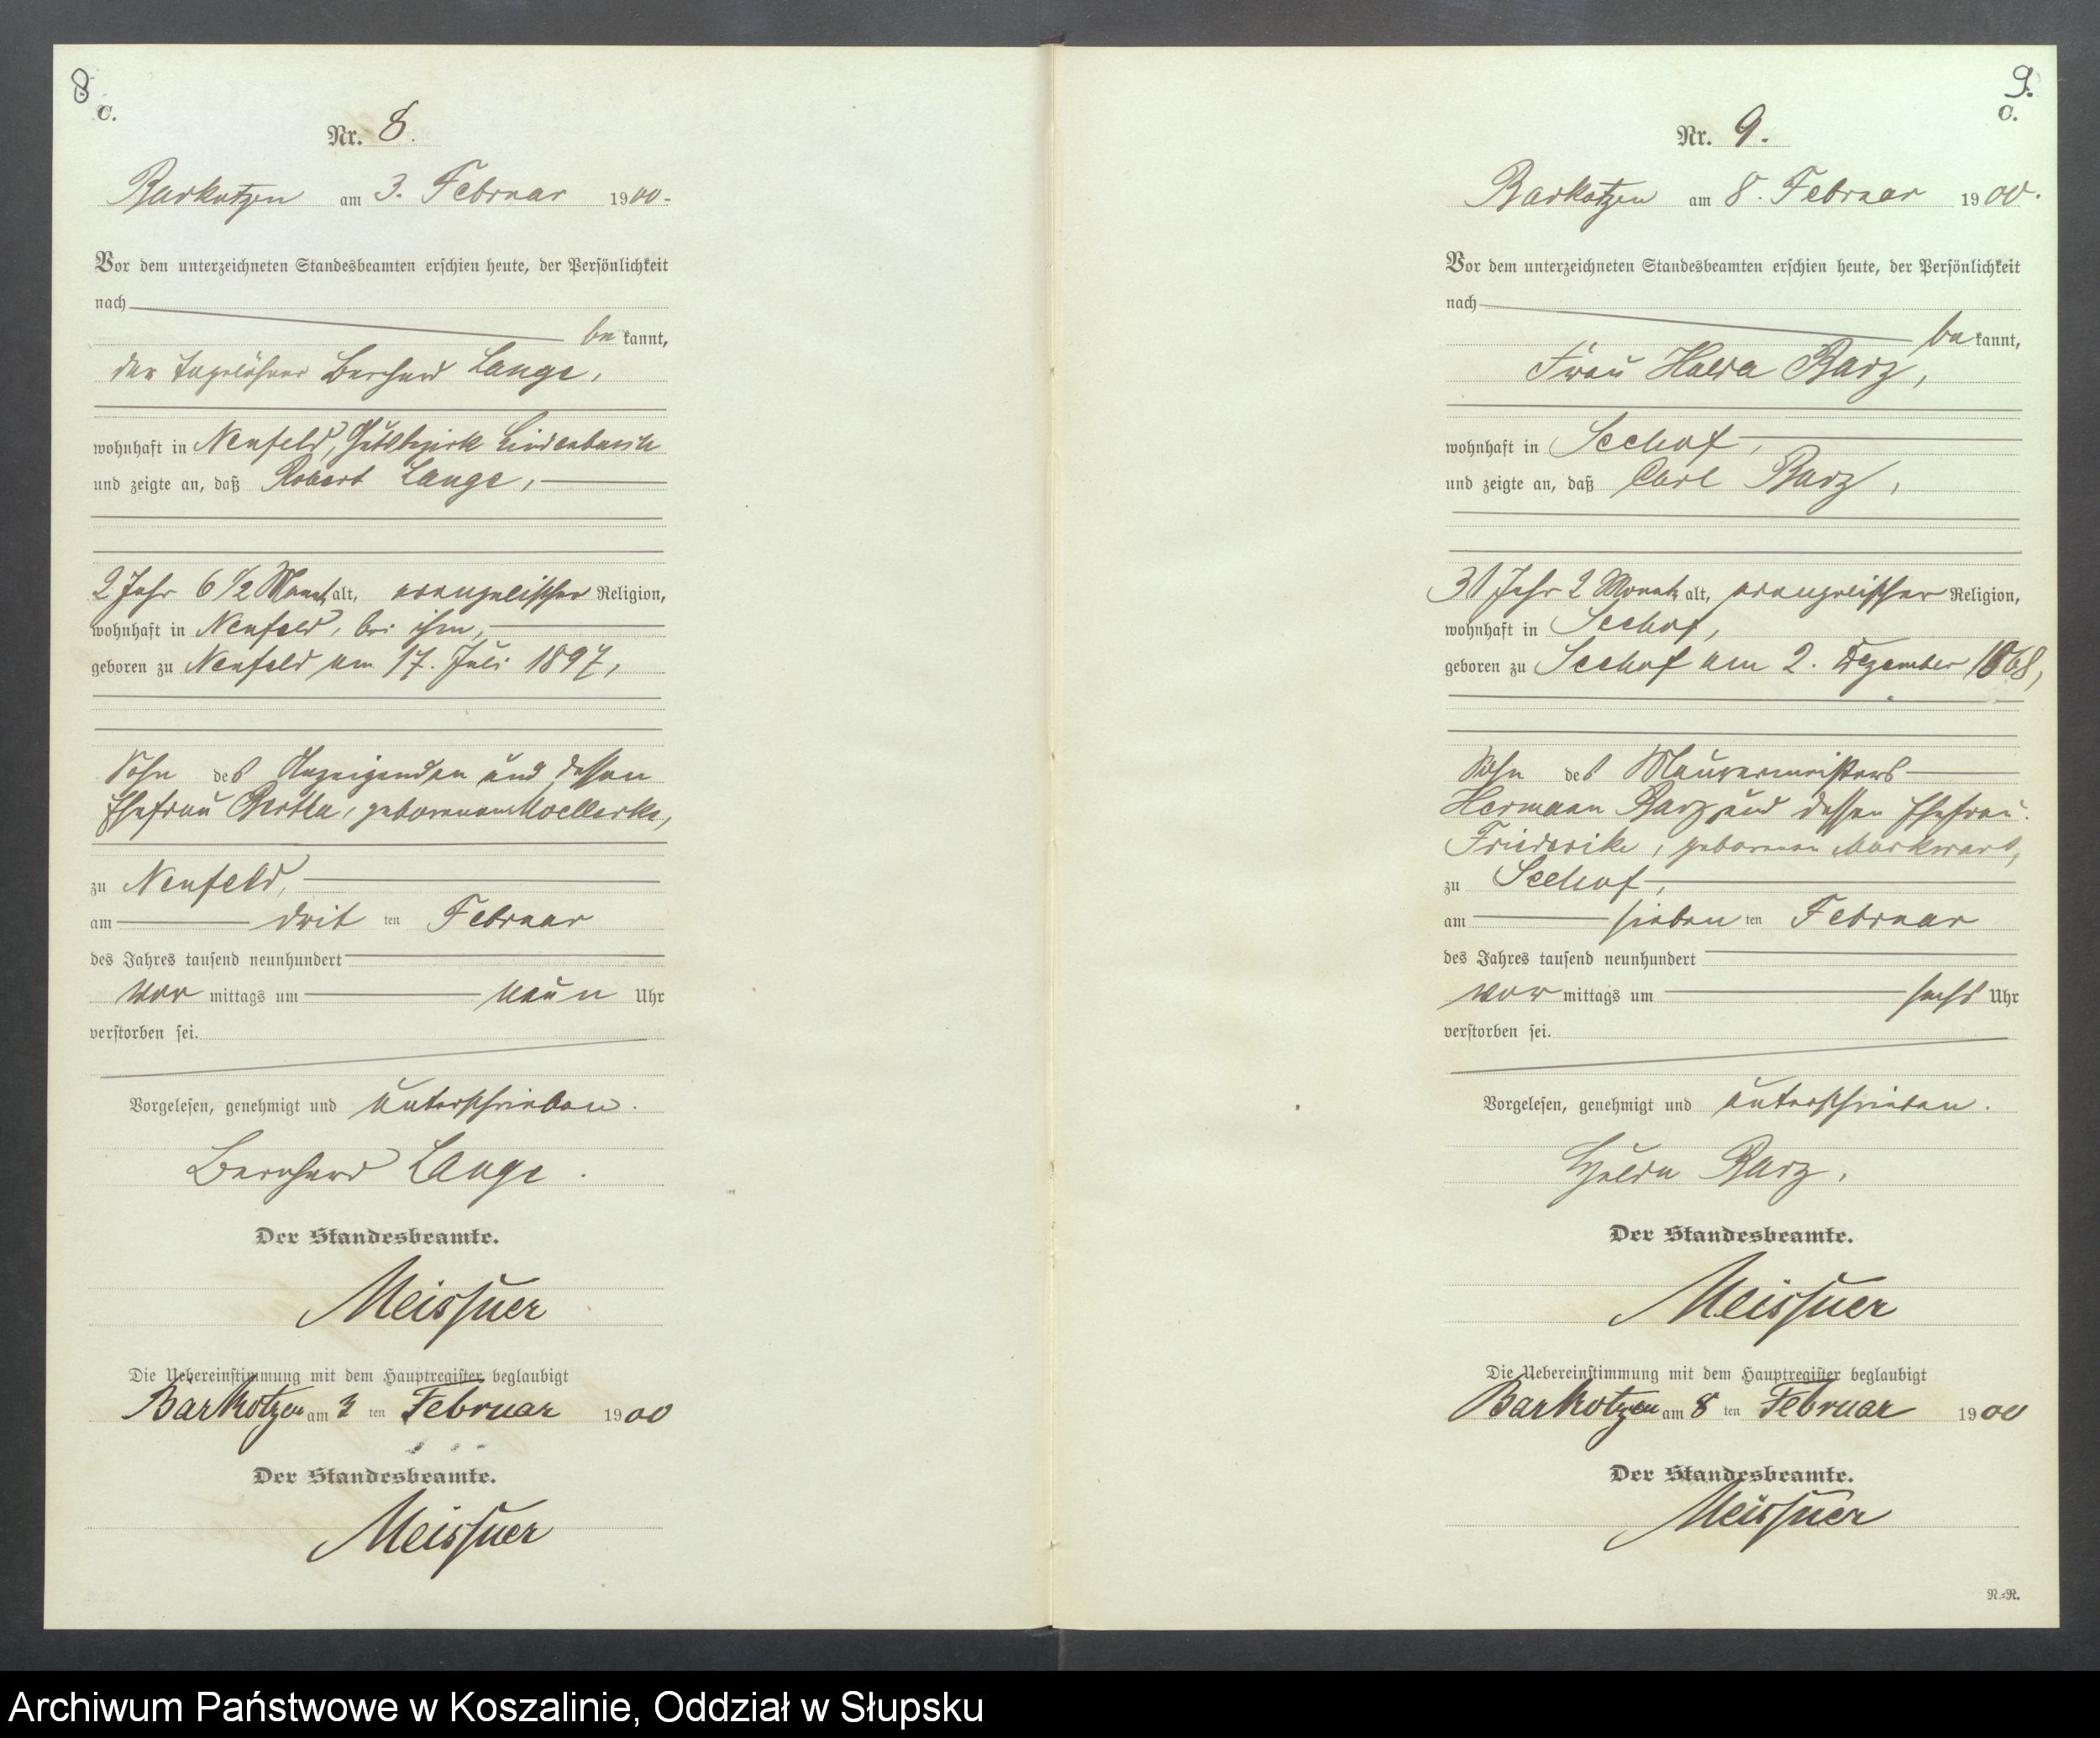 8
C.
Nr. 8.
Barkotzen am 3. Februar 1900.
Vor dem unterzeichneten Standesbeamten erschien heute, der Persönlichkeit
nach
be kannt,
der Tagelöhner Bernhard Lange,
wohnhaft in Neufeld, Gutsbezirk Lindenbusch
und zeigte an, daß Robert Lange,
2 Jahr 6 1/2 Monat alt, evangelischer Religion,
wohnhaft in Neufeld, bei ihm,
geboren zu Neufeld am 17. Juli 1897,
Sohn des Anzeigenden und dessen
Ehefrau Bertha, geborenen Moellerke,
zu Neufeld,
am drit ten Februar
des Jahres tausend neunhundert
Vor mittags um neun Uhr
verstorben sei.
Vorgelesen, genehmigt und unterschrieben.
Bernhard Lange.
Der Standesbeamte.
Meissner
Die Uebereinstimmung mit dem Hauptregister beglaubigt
Barkotzen am 3 ten Februar 1900
Der Standesbeamte.
Meissner
9.
C.
Nr. 9.
Barkotzen am 8. Februar 1900.
Vor dem unterzeichneten Standesbeamten erschien heute, der Persönlichkeit
nach
be kannt,
Frau Hulda Barz,
wohnhaft in Seehof,
und zeigte an, daß Carl Barz,
31 Jahr 2 Monat alt, evangelischer Religion,
wohnhaft in Seehof,
geboren zu Seehof am 2. Dezember 1868,
Sohn des Maurermeisters
Hermann Barz und dessen Ehefrau
Friederike, geborenen Markward,
zu Seehof,
am sieben ten Februar
des Jahres tausend neunhundert
Vor mittags um sechs Uhr
verstorben sei.
Vorgelesen, genehmigt und unterschrieben.
Hulda Barz.
Der Standesbeamte.
Meissner
Die Uebereinstimmung mit dem Hauptregister beglaubigt
Barkotzen am 8 ten Februar 1900
Der Standesbeamte.
Meissner
N.=R.
Archiwum Państwowe w Koszalinie, Oddział w Słupsku